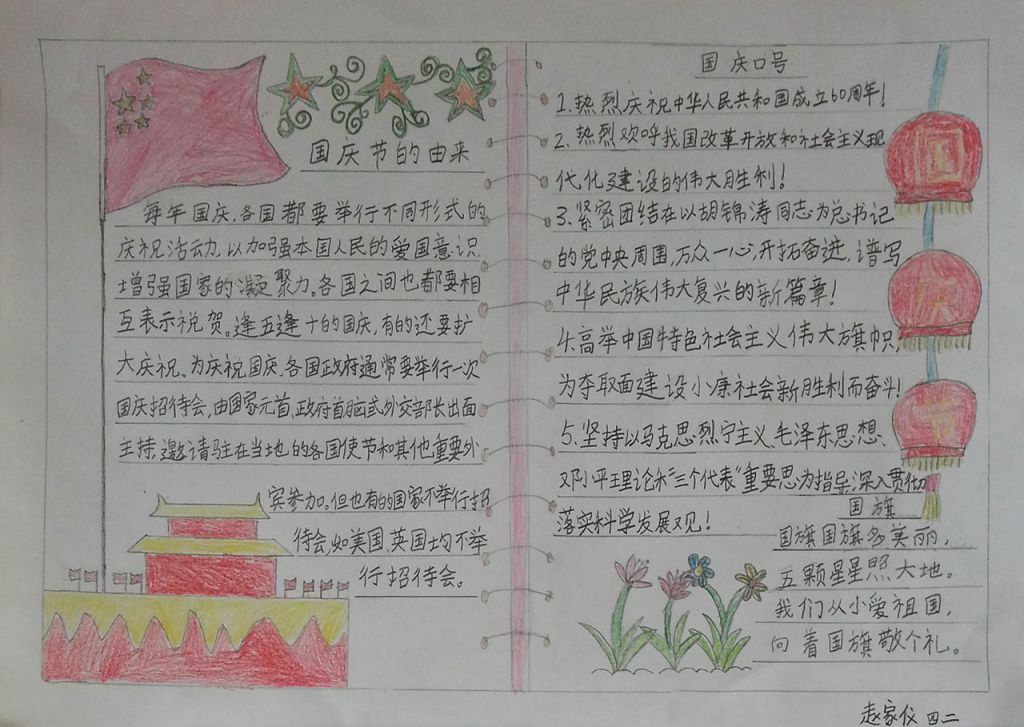 国庆节的由来
每年国庆,各国都要举行不同形式的
庆祝活动,以加强本国人民的爱国意识,
增强国家的凝聚力。各国之间也都要相
互表示祝贺。逢五逢十的国庆,有的还要扩
大庆祝。为庆祝国庆,各国政府通常要举行一次
国庆招待会,由国家元首、政府首脑或外交部长出面
主持,邀请驻在当地的各国使节和其他重要外
宾参加。但也有的国家不举行招
待会,如美国、英国均不举
行招待会。
国庆口号
1.热烈庆祝中华人民共和国成立60周年!
2.热烈欢呼我国改革开放和社会主义现
代化建设的伟大胜利!
3.紧密团结在以胡锦涛同志为总书记
的党中央周围,万众一心,开拓奋进,谱写
中华民族伟大复兴的新篇章!
4.高举中国特色社会主义伟大旗帜,
为夺取面建设小康社会新胜利而奋斗!
5.坚持以马克思烈宁主义、毛泽东思想、
邓小平理论和“三个代表”重要思为指导,深入贯彻
落实科学发展观!
国庆节
国旗
国旗国旗多美丽,
五颗星星照大地。
我们从小爱祖国,
向着国旗敬个礼。
赵家仪 四二